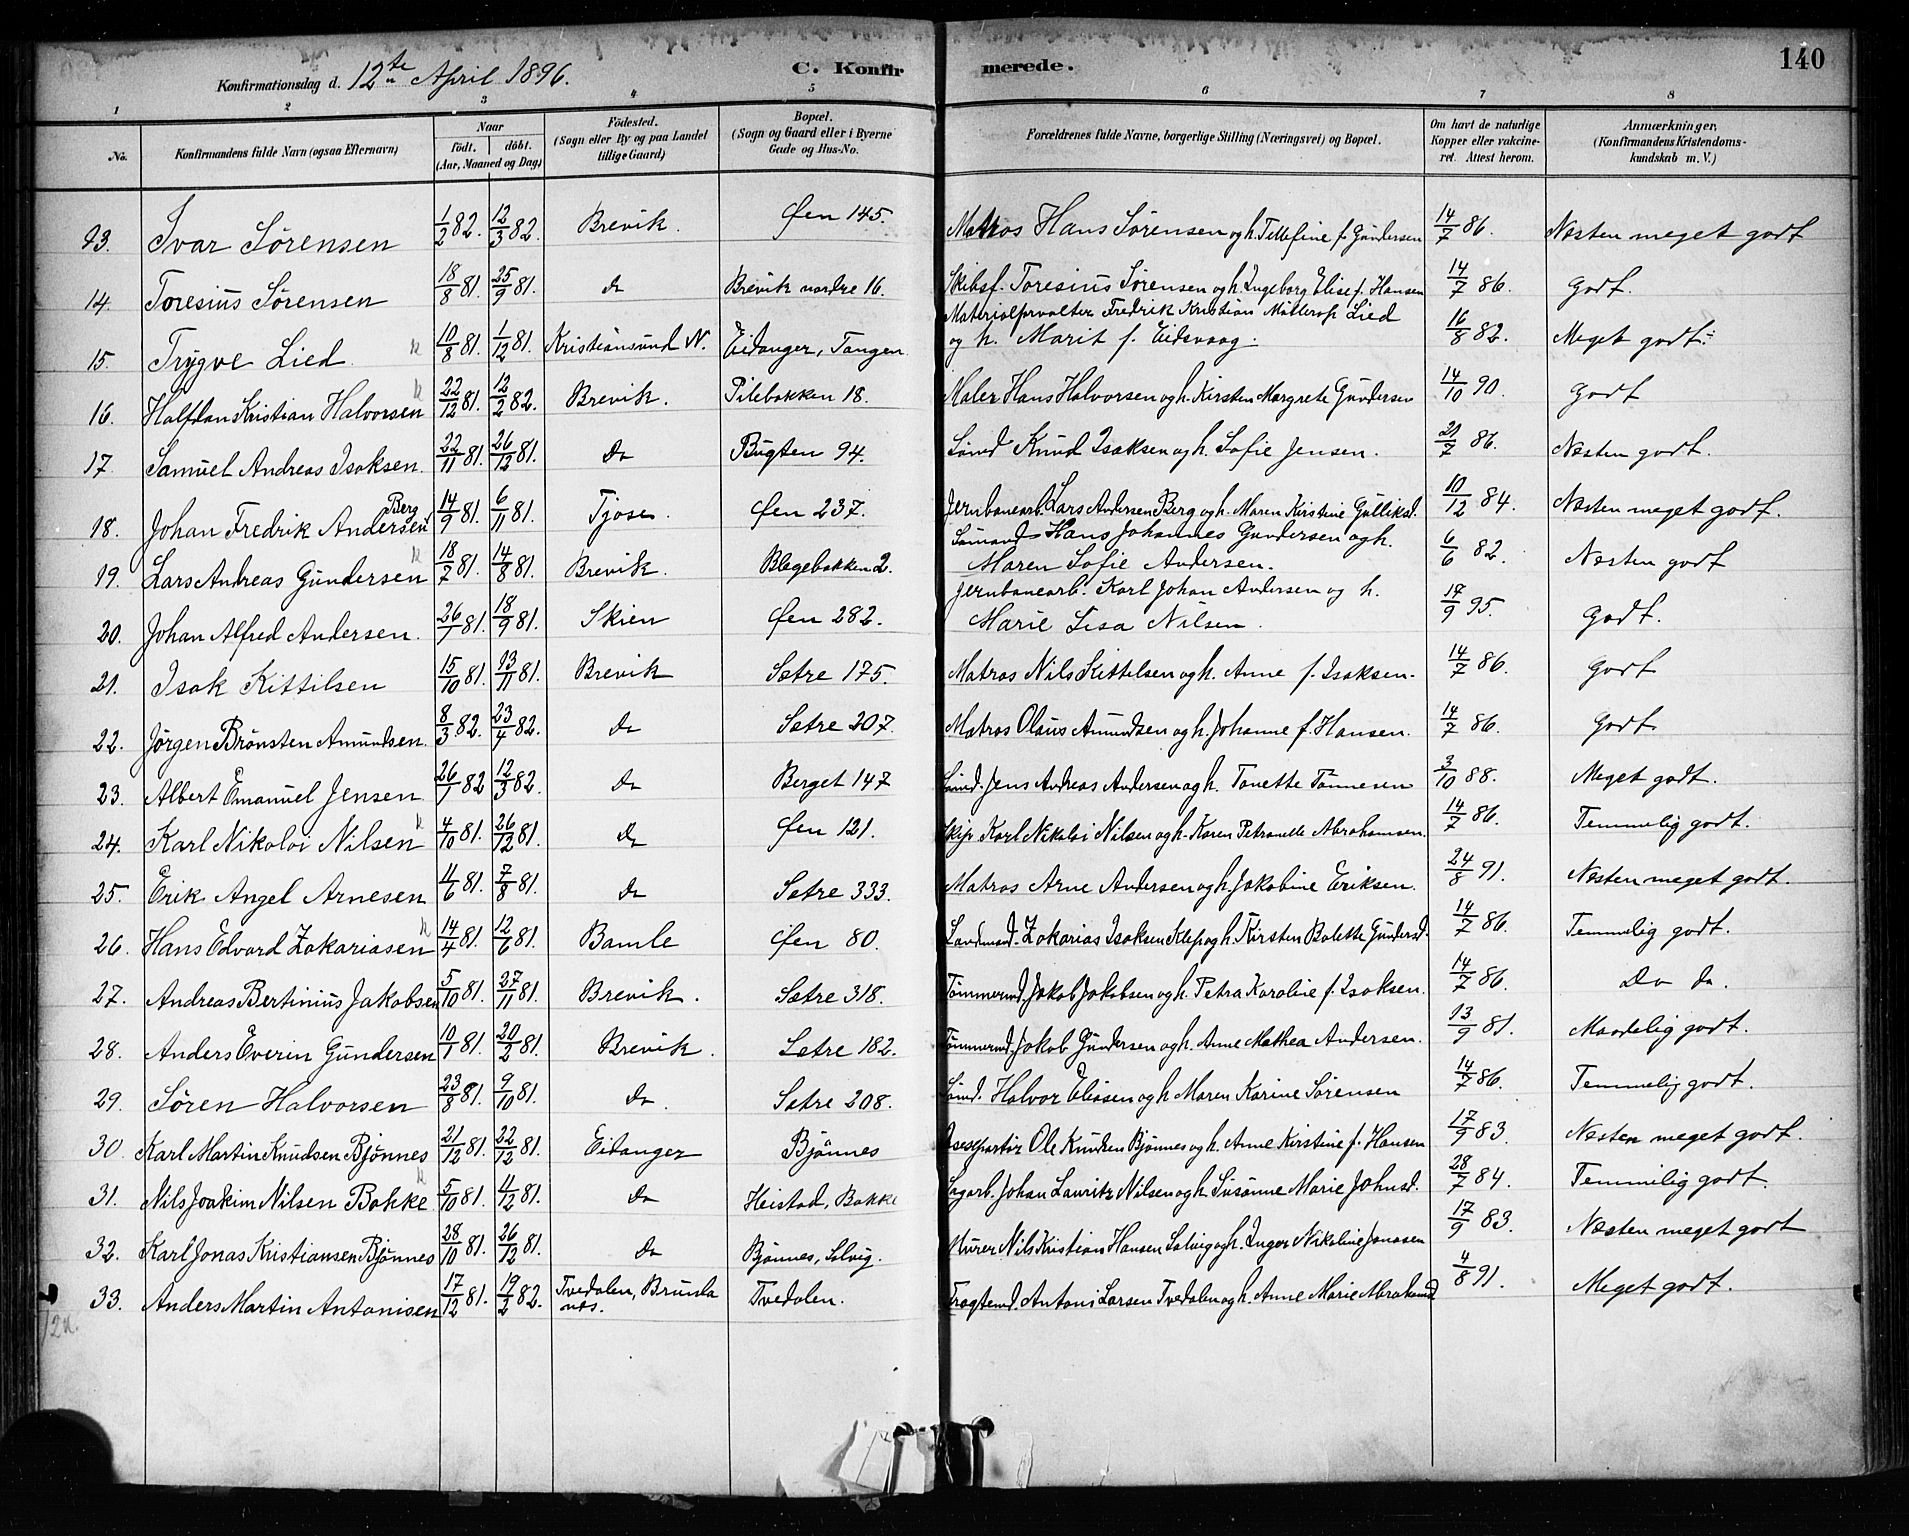 140
Konfirmationsdag d. 12te April 1896.
C. Konfirmerede.
1 2 3 4 5 6 7 8
No. Konfirmandens fulde Navn (ogsaa Efternavn) Naar födt. döbt. (Aar, Maaned og Dag) Födested. (Sogn eller By og paa Landet tillige Gaard) Bopæl. (Sogn og Gaard eller i Byerne Gade og Hus-No. Forældrenes fulde Navne, borgerlige Stilling (Næringsvei) og Bopæl. Om havt de naturlige Kopper eller vakcineret. Attest herom. Anmærkninger. (Konfirmandens Kristendomskundskab m. V.)
13. Ivar Sørensen 1/2 82. 12/3 82. Brevik. Øen 145. Matros Hans Sørensen og h. Tellefine f. Gundersen 14/7 86. Næsten meget godt
14. Toresius Sørensen 18/8 81. 25/9 81. do Brevik nordre 16. Skibsf. Toresius Sørensen og h. Ingeborg Elise f. Hansen 14/7 86. Godt.
15. Trygve Lied. 10/8 81. 1/12 81. Kristiansund N. Eidanger, Tangen Materialforvalter Fredrik Kristian Møllerop Lied
og h. Marit f. Eidsvaag. 16/8 82. Meget godt.
16. Halfdan Kristian Halvorsen 22/12 81. 12/2 82. Brevik. Pilebakken 18. Maler Hans Halvorsen og h. Kirsten Margrete Gundersen 14/10 90. Godt
17. Samuel Andreas Isaksen. 22/11 81. 26/12 81. do Bugten 94. Sömd Knud Isaksen og h. Sofie Jensen. 21/7 86. Næsten godt.
18. Johan Fredrik Andersen Berg 14/9 81. 6/11 81. Tjose. Øen 237. Jernbanearb. Lars Andersen Berg og h. Maren Kirstine Gulliksd. 10/12 84. Næsten meget godt.
19. Lars Andreas Gundersen 18/7 81. 14/8 81. Brevik. Blegebakken 2. Sömand Hans Johannes Gundersen og h.
Maren Sofie Andersen. 6/6 82. Næsten godt
20. Johan Alfred Andersen. 26/7 81. 18/9 81. Skien Øen 282. Jernbanearb. Karl Johan Andersen og h.
Marie Lisa Nilsen. 17/9 95. Godt.
21. Isak Kittilsen 15/10 81. 13/11 81. Brevik Sætre 175. Matros Nils Kittilsen og h. Anne f. Isaksen. 14/7 86. Godt
22. Jørgen Brönsten Amundsen. 8/3 82. 23/4 82. do Sætre 207. Matros Olaus Amundsen og h. Johanne f. Hansen. 14/7 86. Godt
23. Albert Emanuel Jensen 26/1 82 12/3 82. do Berget 147 Sömd. Jens Andreas Andersen og h. Tonette Tönnesen 3/10 88. Meget godt.
24. Karl Nikolai Nilsen 4/10 81. 26/12 81. do Øen 121. Skip Karl Nikolai Nilsen og h. Karen Petronelle Abrahamsen. 14/7 86. Temmelig godt.
25. Erik Angel Arnesen 11/6 81. 7/8 81. do Sætre 333. Matros Arne Andersen og h. Jakobine Eriksen. 24/8 91. Næsten meget godt.
26. Hans Edvard Zakariasen 14/4 81. 12/6 81. Bamle Øen 80. Landmand. Zakarias Isaksen Klep og h. Kirsten Bolette Gundersd. 14/7 86. Temmelig godt.
27. Andreas Bertinius Jakobsen 5/10 81. 27/11 81. Brevik. Sætre 318. Tömmermd. Jakob Jakobsen og h. Petra Karoline f. Isaksen. 14/7 86. Do do.
28. Anders Everin Gundersen 10/1 81. 20/2 81. Brevik. Sætre 182. Tömmermd. Jakob Gundersen og h. Anne Mathea Andersen. 13/9 81. Maadelig godt.
29. Sören Halvorsen 23/8 81. 9/10 81. do. Sætre 208. Sömd. Halvor Eliasen og h Maren Karine Sörensen 14/7 86. Temmelig godt.
30. Karl Martin Knudsen Bjönnes 21/12 81. 22/12 81. Eidanger Bjönnes Ole Knudsen Bjönnes og h. Anne Kirstine f. Hansen 17/9 83. Næsten meget godt.
31. Nils Joakim Nilsen Bakke. 5/10 81. 11/12 81. do Heistad, Bakke Sagarb. Johan Lauritz Nilsen og h. Susanne Marie Johnsd. 28/7 84. Temmelig godt.
32. Karl Jonas Kristiansen Bjönnes 28/10 81. 26/12 81. do Bjönnes, Solvig. Murer Nils Kristian Hansen Solvig og h. Inger Nikoline Jonasen 17/9 83. Næsten meget godt
33. Anders Martin Antonisen 17/12 81. 19/2 82. Tvedalen, Brunlanæs. Tvedalen. Fragtemd. Antoni Larsen Tvedalen og h. Anne Marie Abrahamsd 4/8 91. Meget godt.
12 n.